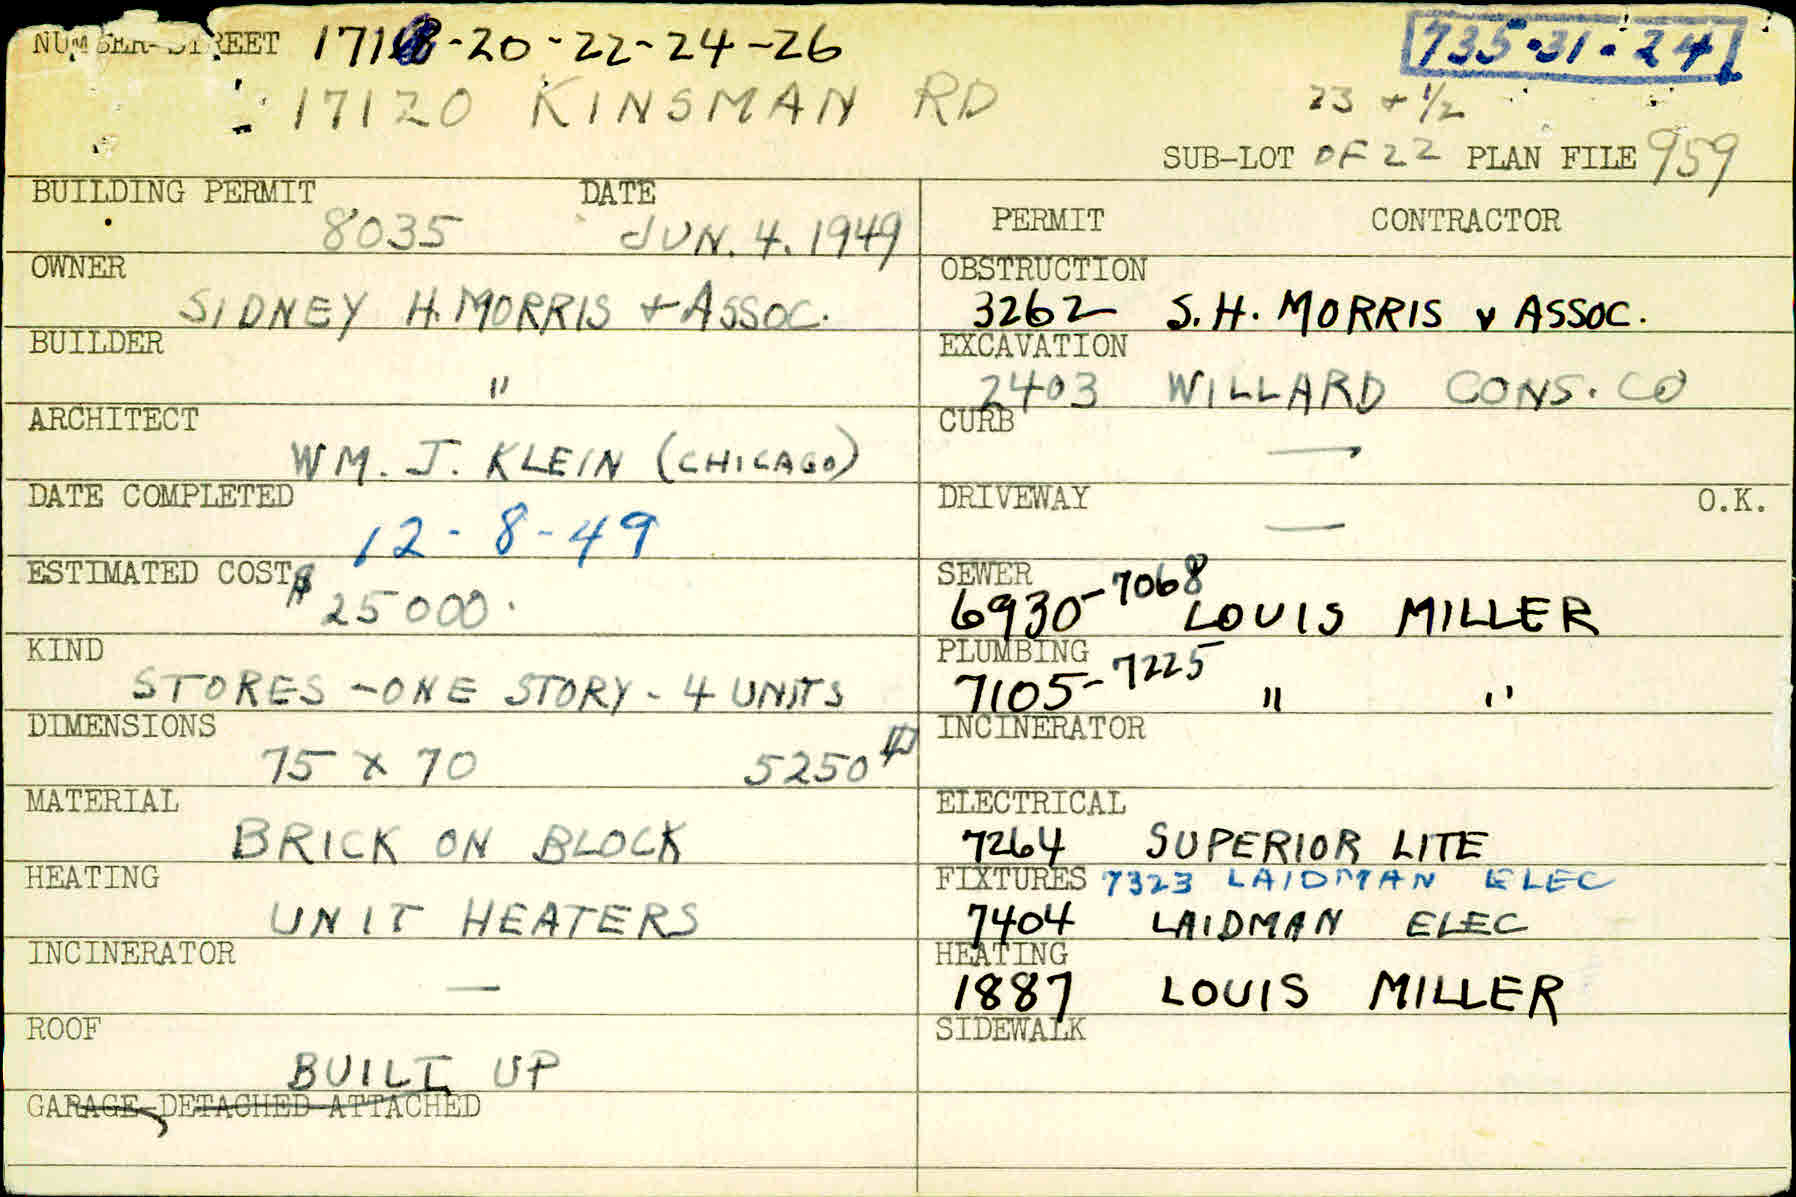 NUMBER-STREET 17118-20-22-24-26 735-31-24
17120 KINSMAN RD 23 + 1/2
SUB-LOT OF 22 PLAN FILE 959
BUILDING PERMIT DATE
8035 JUN. 4. 1949
PERMIT CONTRACTOR
OWNER
SIDNEY H. MORRIS + ASSOC.
OBSTRUCTION
3262 S. H. MORRIS & ASSOC.
BUILDER
"
EXCAVATION
2403 WILLARD CONS. CO
ARCHITECT
WM. J. KLEIN (CHICAGO)
CURB
—
DATE COMPLETED
12-8-49
DRIVEWAY O.K.
—
ESTIMATED COST
$25000.
SEWER
6930-7068 LOUIS MILLER
KIND
STORES - ONE STORY - 4 UNITS
PLUMBING
7105-7225 " "
DIMENSIONS
75 x 70 5250
INCINERATOR
MATERIAL
BRICK ON BLOCK
ELECTRICAL
7264 SUPERIOR LITE
HEATING
UNIT HEATERS
FIXTURES 7323 LAIDMAN ELEC
7404 LAIDMAN ELEC
INCINERATOR
—
HEATING
1887 LOUIS MILLER
ROOF
BUILT UP
SIDEWALK
GARAGE-DETACHED-ATTACHED